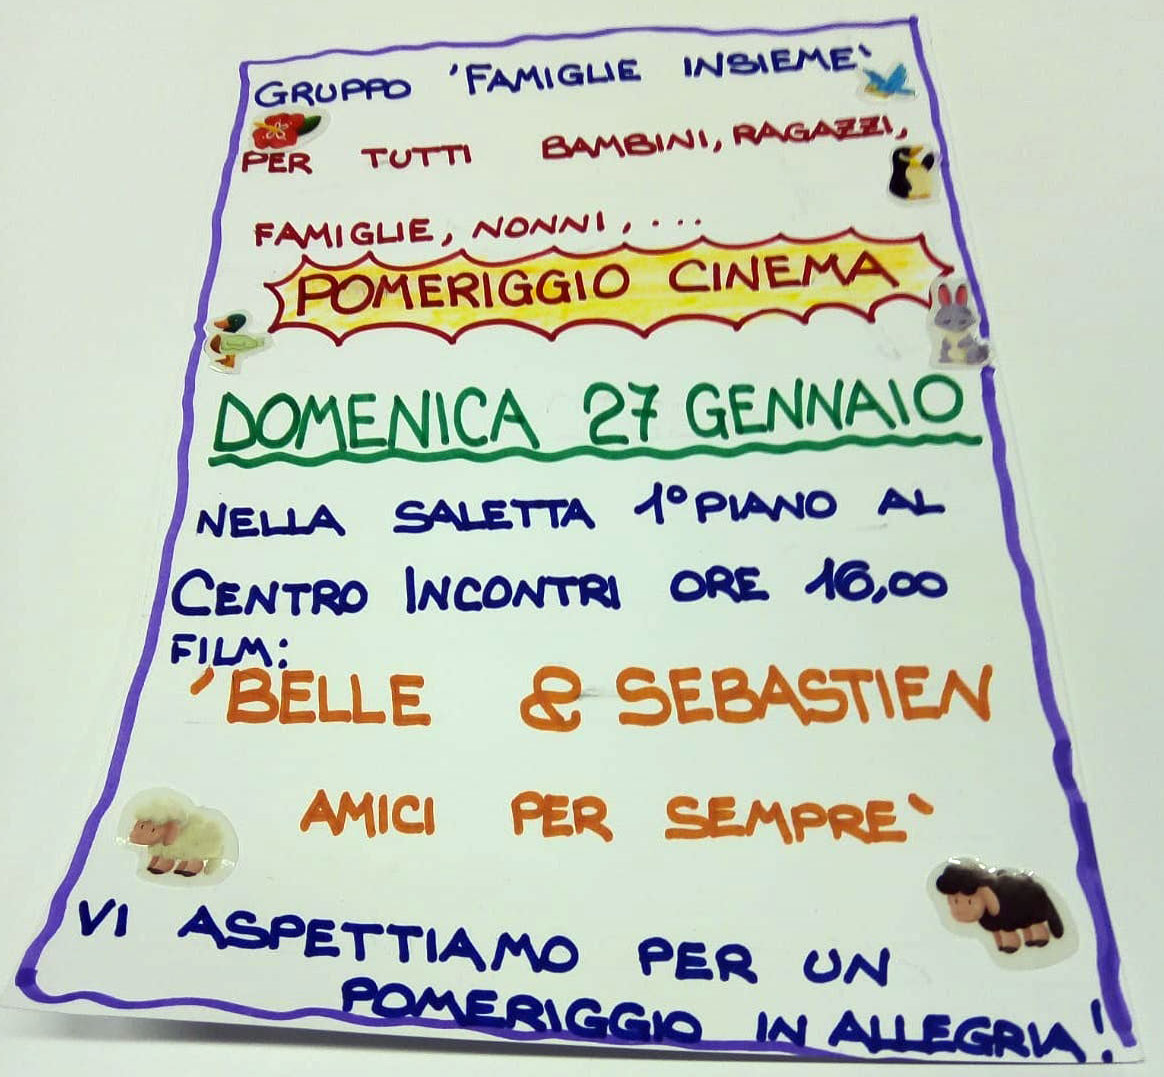 GRUPPO 'FAMIGLIE INSIEME'
PER TUTTI BAMBINI, RAGAZZI,
FAMIGLIE, NONNI, ...
POMERIGGIO CINEMA
DOMENICA 27 GENNAIO
NELLA SALETTA 1° PIANO AL
CENTRO INCONTRI ORE 16,00
FILM:
'BELLE & SEBASTIEN
AMICI PER SEMPRE'
VI ASPETTIAMO PER UN
POMERIGGIO IN ALLEGRIA!